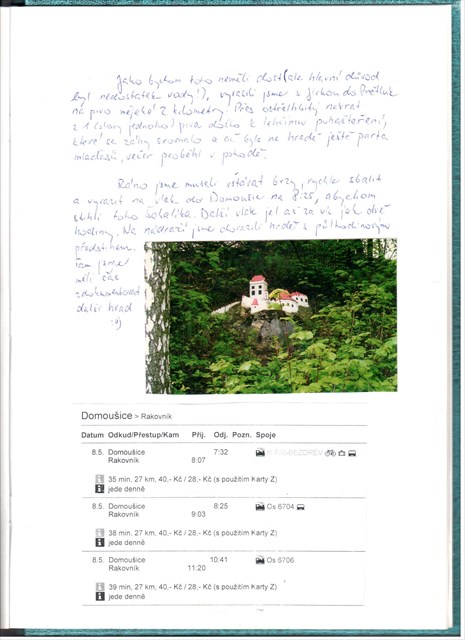 Jako bychom toho neměli dost (ale hlavní důvod
byl nedostatek vody!), vyrazili jsme s Jirkou do
na pivo nějaké 2 kilometry. Přes návrat
z 1 jednoho piva došlo k
které se záhy srovnalo a ač byla na hradě ještě parta
mladasů, večer proběhl v pohodě.
Ráno jsme museli vstávat brzy, rychle sbalit
a vyrazit na vlak do Domoušic na 8:25, abychom
stihli toho Další vlak jel až za víc jak dvě
hodiny. Na nádraží jsme dorazili hnedle s půlhodinovým
předstihem.
Tam jsme
měli čas
zdokumentovat
další hrad
:o)
Domoušice > Rakovník
Datum Odkud/Přestup/Kam Příj. Odj. Pozn. Spoje
8.5. Domoušice 7:32
Rakovník 8:07
35 min, 27 km, 40,- Kč / 28,- Kč (s použitím Karty Z)
jede denně
8.5. Domoušice 8:25 Os 6704
Rakovník 9:03
38 min, 27 km, 40,- Kč / 28,- Kč (s použitím Karty Z)
jede denně
8.5. Domoušice 10:41 Os 6706
Rakovník 11:20
39 min, 27 km, 40,- Kč / 28,- Kč (s použitím Karty Z)
jede denně